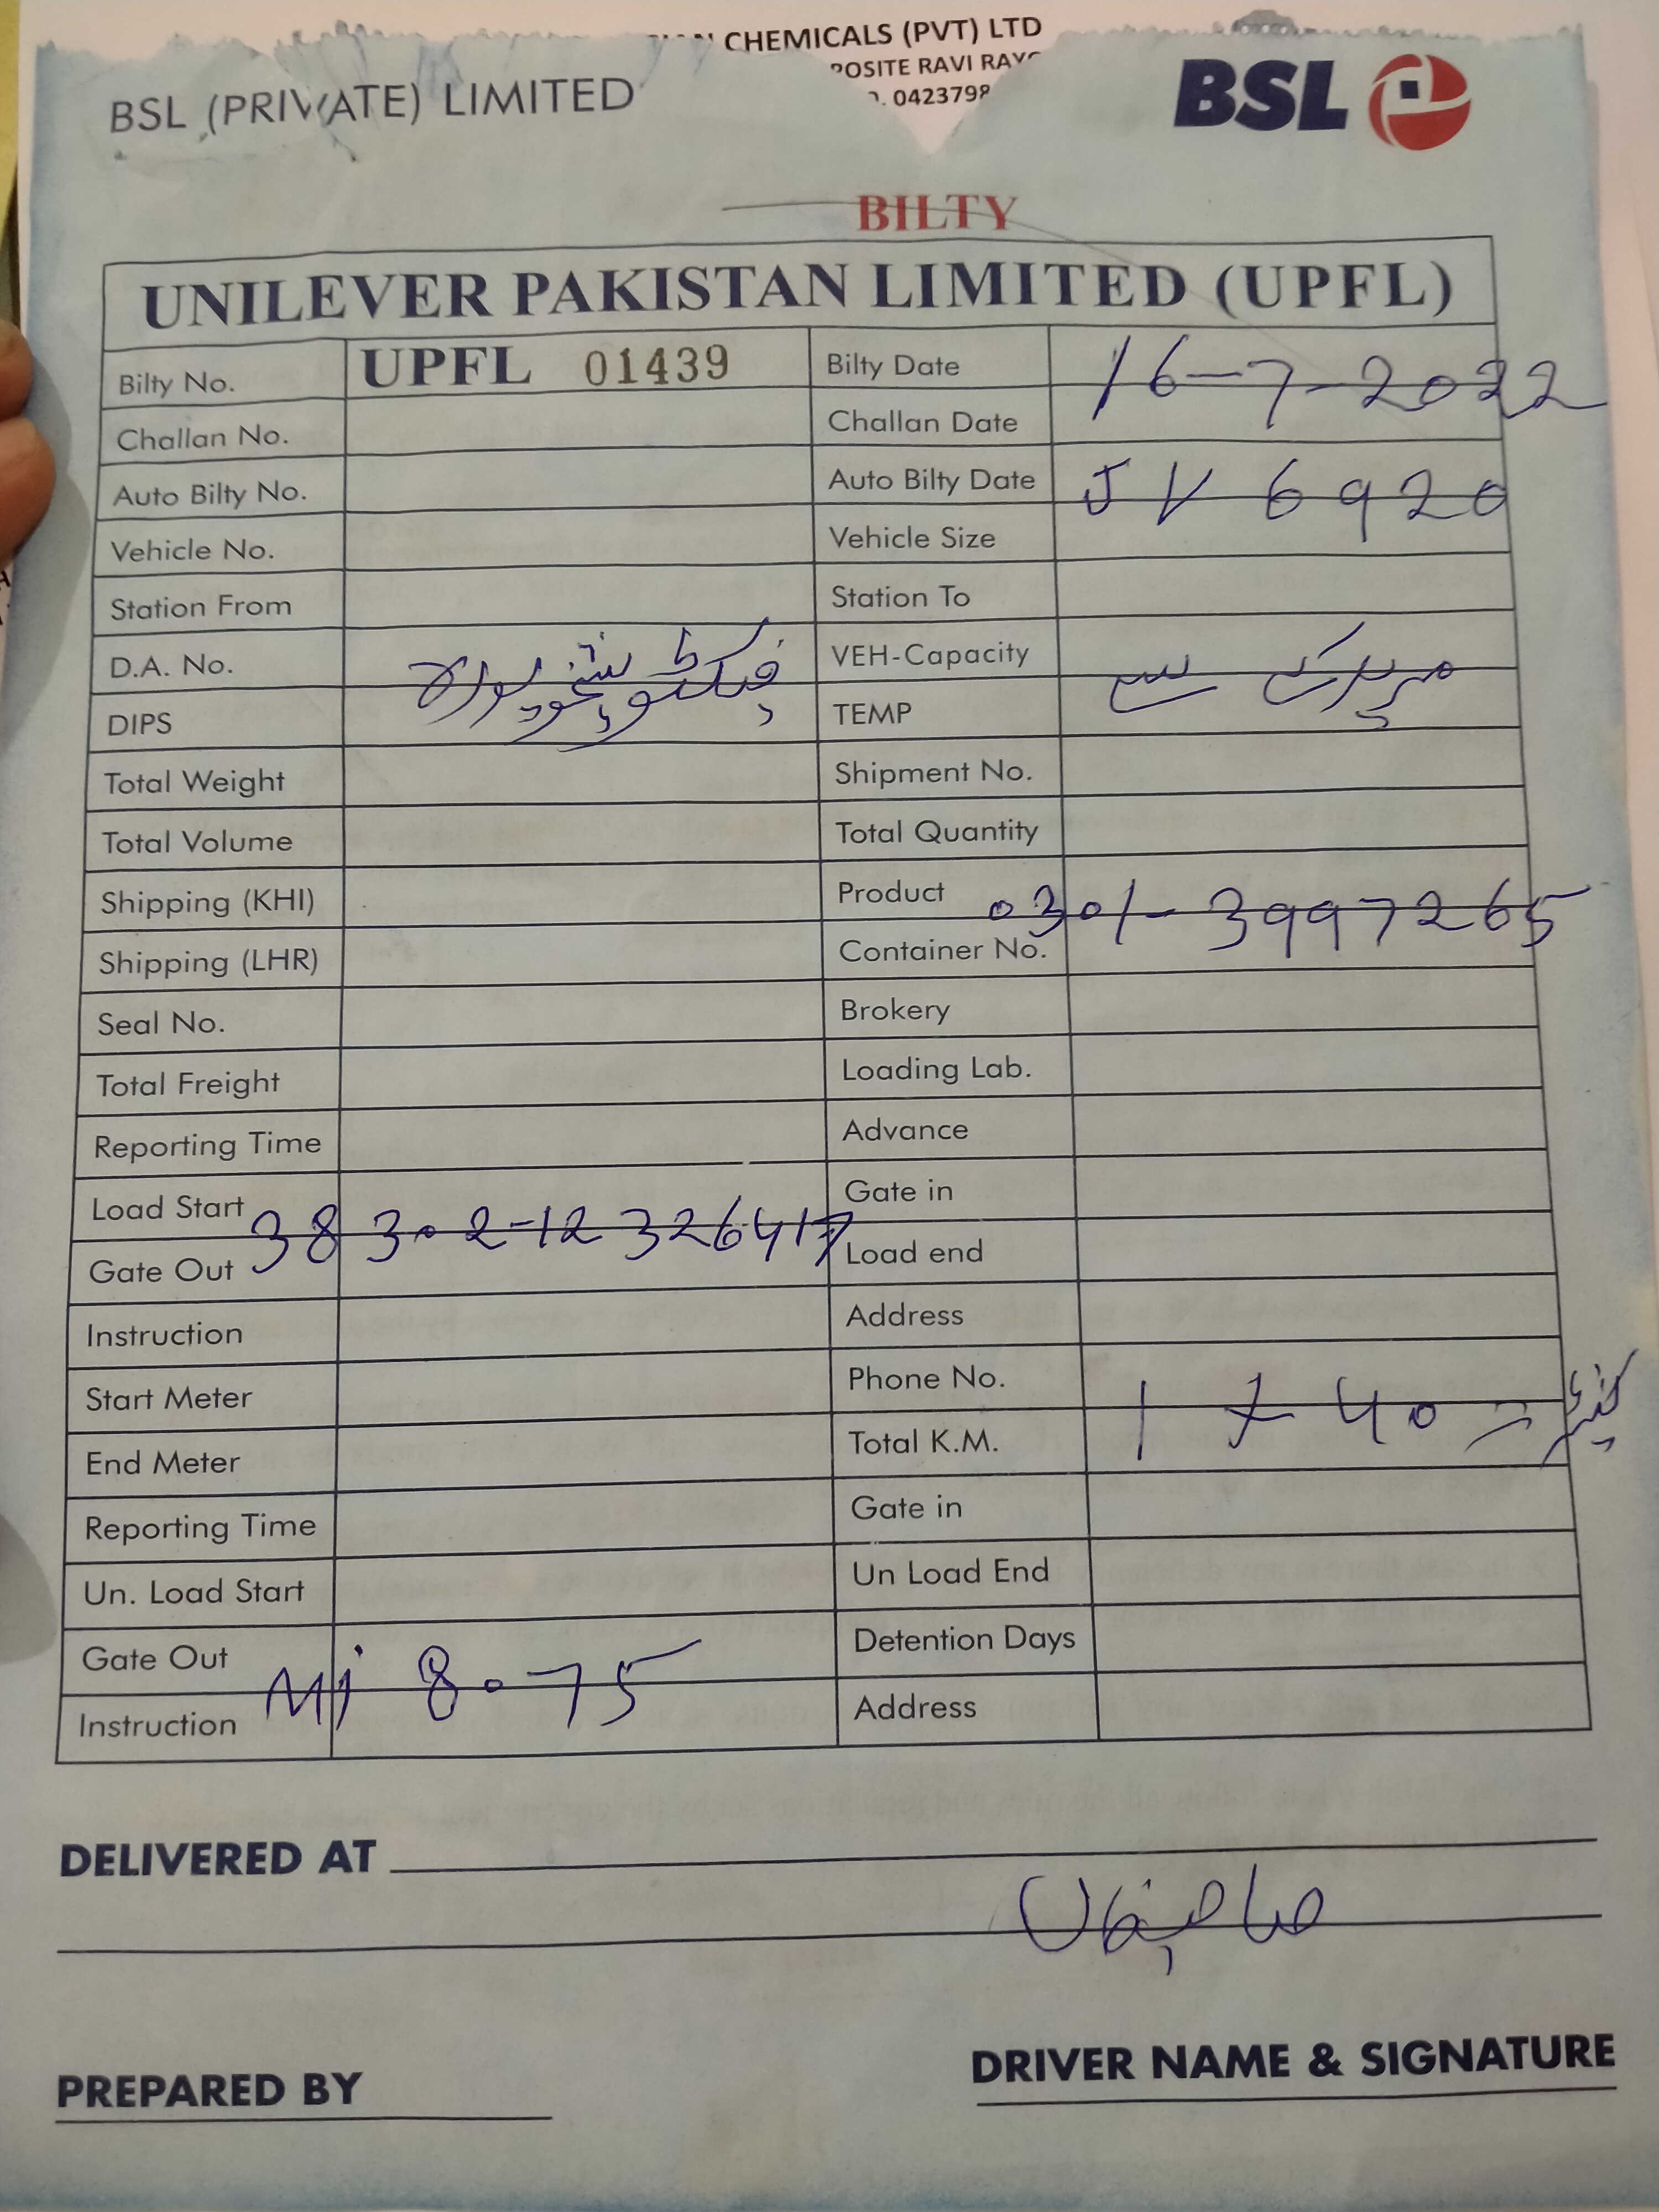 CHEMICALS (PVT) LTD
POSITE RAVI RAYO
0423798
BSL (PRIVATE) LIMITED
BSL
BILTY
UNILEVER PAKISTAN LIMITED (UPFL)
Bilty No. UPFL 01439 Bilty Date 16-7-2022
Challan No. Challan Date
Auto Bilty No. Auto Bilty Date JV 6920
Vehicle No. Vehicle Size
Station From Station To
D.A. No. VEH-Capacity
DIPS TEMP
Total Weight Shipment No.
Total Volume Total Quantity
Shipping (KHI) Product 0301-3997265
Shipping (LHR) Container No.
Seal No. Brokery
Total Freight Loading Lab.
Reporting Time Advance
Load Start Gate in
38302-12326417
Gate Out Load end
Instruction Address
Start Meter Phone No.
1740
End Meter Total K.M.
Reporting Time Gate in
Un. Load Start Un Load End
Gate Out Detention Days
8075
Instruction Address
DELIVERED AT
PREPARED BY
DRIVER NAME & SIGNATURE